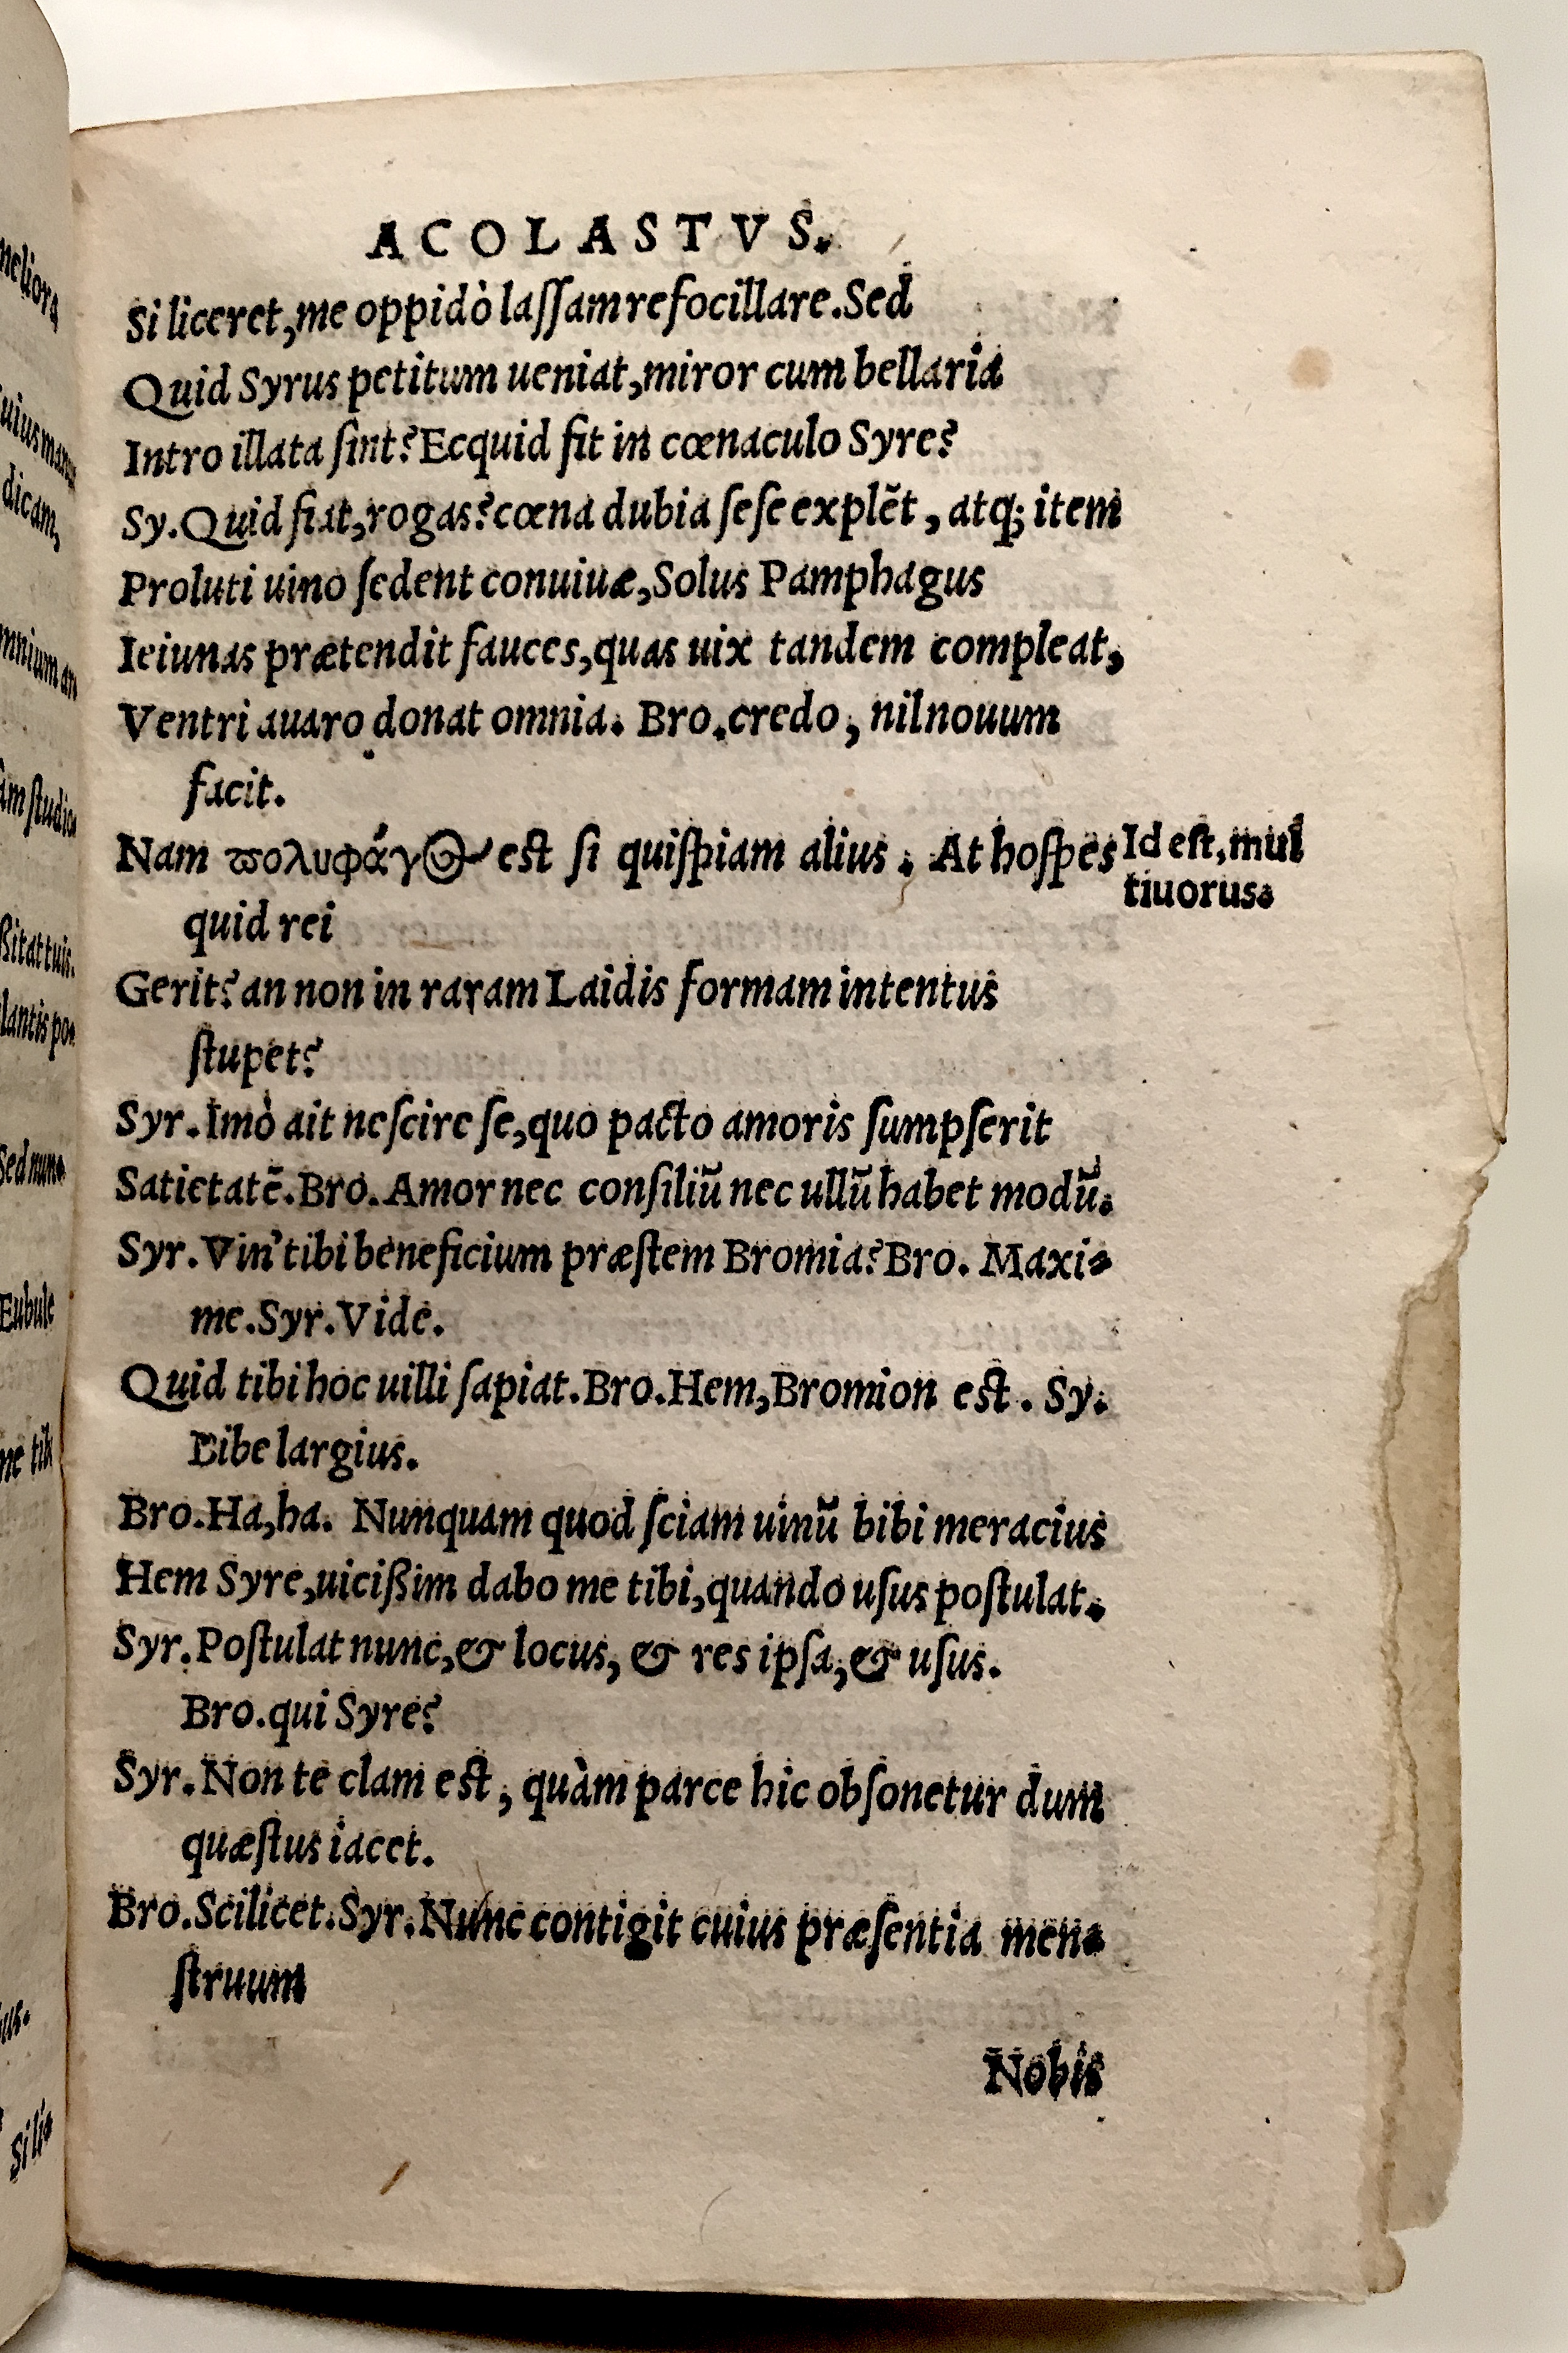 ACOLASTVS.
Si liceret,me oppidò laſſam refocillare.Sed
Quid Syrus petitum ueniat,miror cum bellaria
Intro illata ſint?Ecquid fit in cœnaculo Syre?
Sy.Quid fiat,rogas?cœna dubia ſeſe explẽt, atq; item
Proluti uino ſedent conuiuæ,Solus Pamphagus
Ieiunas prætendit fauces,quas uix tandem compleat,
Ventri auaro donat omnia. Bro.credo, nil nouum
facit.
Nam πολυφάγος est ſi quiſpiam alius. At hoſpes
Id eſt,mul
tiuorus.
quid rei
Gerit?an non in raram Laidis formam intentus
ſtupet?
Syr.Imò ait neſcire ſe,quo pacto amoris ſumpſerit
Satietatẽ.Bro.Amor nec conſiliũ nec ullũ habet modũ.
Syr.Vin' tibi beneficium præſtem Bromia?Bro. Maxi-
me.Syr.Vide.
Quid tibi hoc uilli ſapiat.Bro.Hem,Bromion est. Sy.
Bibe largius.
Bro.Ha,ha. Nunquam quod ſciam uinũ bibi meracius
Hem Syre,uicißim dabo me tibi,quando uſus poſtulat.
Syr.Poſtulat nunc,& locus, & res ipſa,& uſus.
Bro.qui Syre?
Syr.Non te clam est, quàm parce hic obſonetur dum
quæſtus iacet.
Bro.Scilicet.Syr.Nunc contigit cuius præſentia men-
ſtruum
Nobis
meliora
cuius manu
dicam,
omnium an
ßitat tuis.
lantis po-
Sed nunc
Eubule
ne tibi